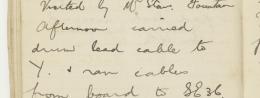 Visited by Mr Stan. Taunton
Afternoon carried
drum lead cable to
Y. & ran cables
from board to SE 36.